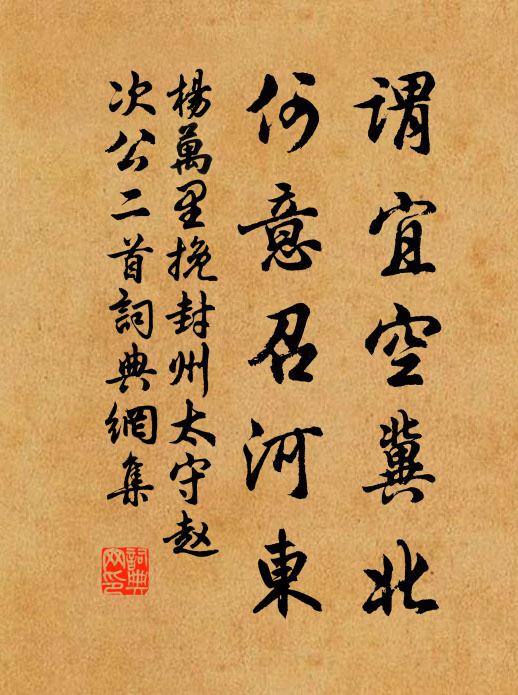 謂宜空冀北
何意召河東
楊萬里挽封州太守赵
次公二首詞典網集
詞典网印